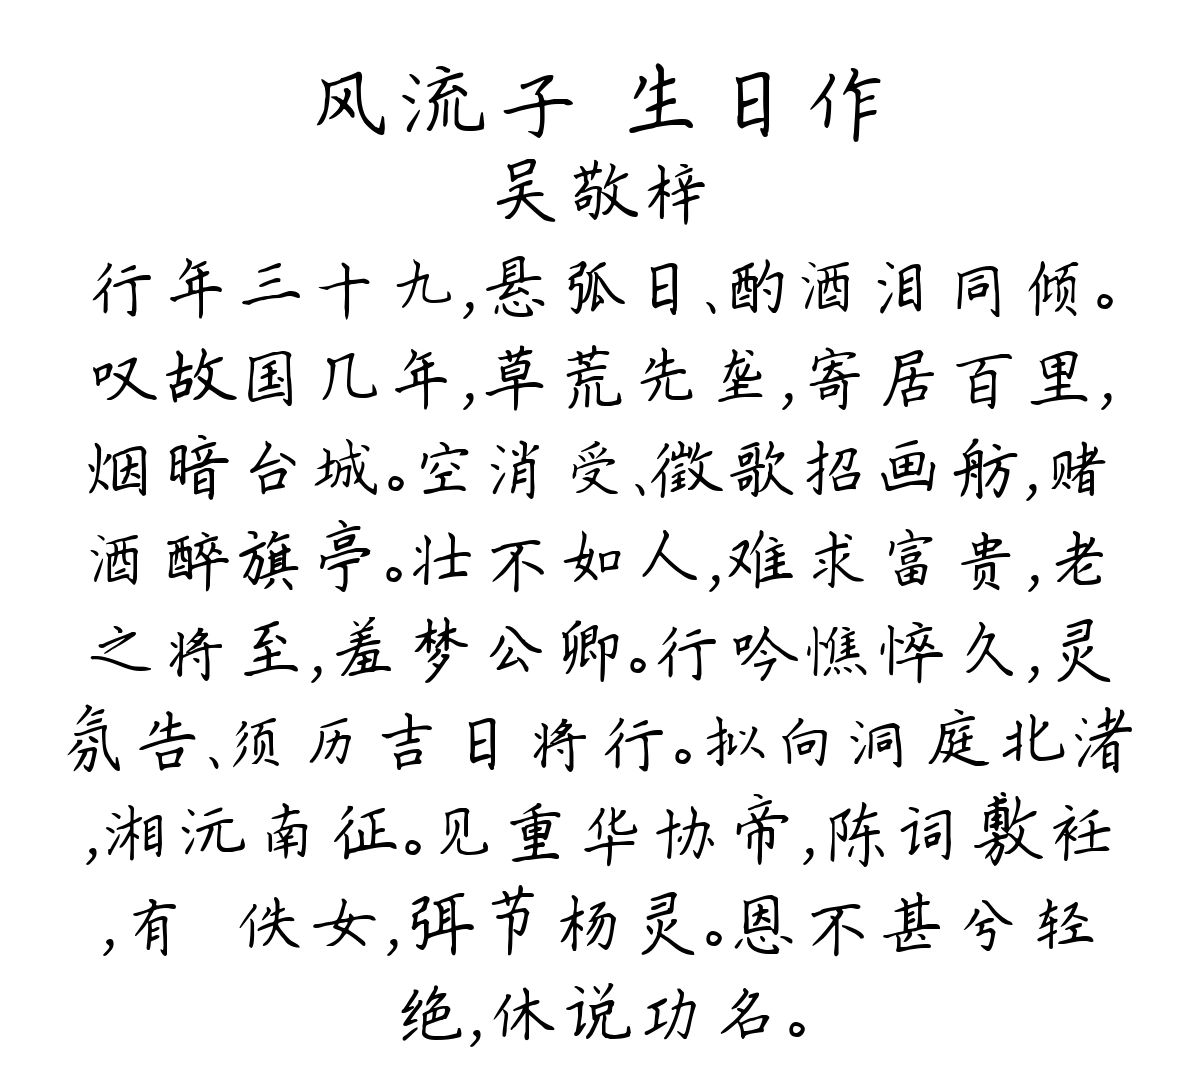 风流子 生日作
吴敬梓
行年三十九,悬弧日、酌酒泪同倾。
叹故国几年,草荒先垄,寄居百里,
烟暗台城。空消受、徵歌招画舫,赌
酒醉旗亭。壮不如人,难求富贵,老
之将至,羞梦公卿。行吟憔悴久,灵
氛告、须历吉日将行。拟向洞庭北渚
,湘沅南征。见重华协帝,陈词敷衽
,有 佚女,弭节杨灵。恩不甚兮轻
绝,休说功名。